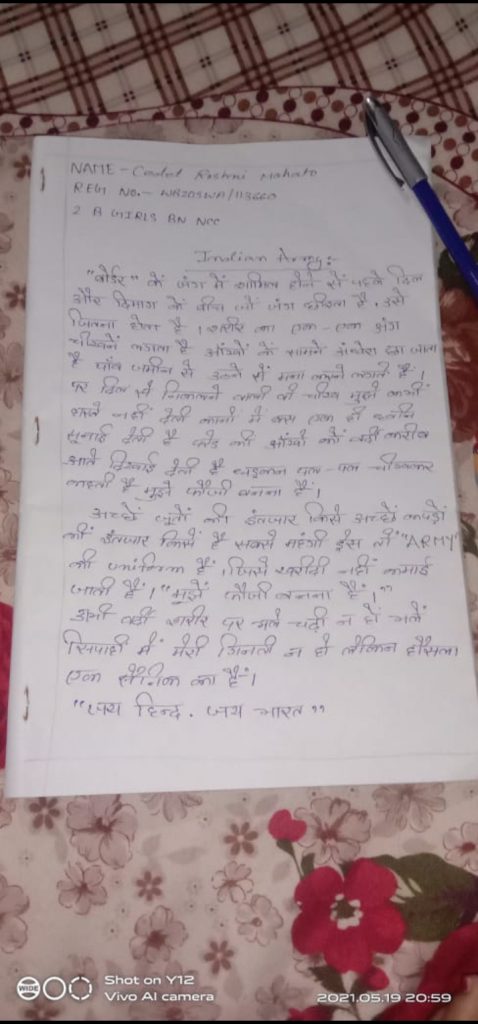 NAME - Cadet Roshni Mahato
REGI NO.- WB20SWA/113660
2 B GIRLS BN NCC
Indian Army:-
"बोर्डर" के जंग में शामिल होने से पहले दिल
और दिमाग के बीच जो जंग छीरता है. उसे
जितना होता है। शरीर का एक-एक अंग
चीखने लगता है आँखों के सामने अंधेरा छा जाता
है पाँव जमीन से उठने से मना करने लगते है।
पर दिल से निकलने वाली वो चीख मुझे कभी
थकने नहीं देती कानो में बस एक ही ध्वनि
सुनाई देती है की आँखो को वर्दी करीब
आते दिखाई देती है धड़कन पल-पल चीखकर
कहती है मुझे फौजी बनना है।
अच्छे जूतों की इंतजार किसे अच्छे कपड़ो
की इंतजार किसे है सबसे महंगी ड्रेस तो "ARMY"
की है। जिसे खरीदी नहीं कमाई
जाती है। "मुझे फौजी बनना है।"
अभी वर्दी शरीर पर भले चढ़ी न हो भले
सिपाही में मेरी गिनती न हो लेकिन हौसला
एक सैनिक का है।
"जय हिन्द. जय भारत"
WIDE
Shot on Y12
Vivo AI camera
2021.05.19 20:59